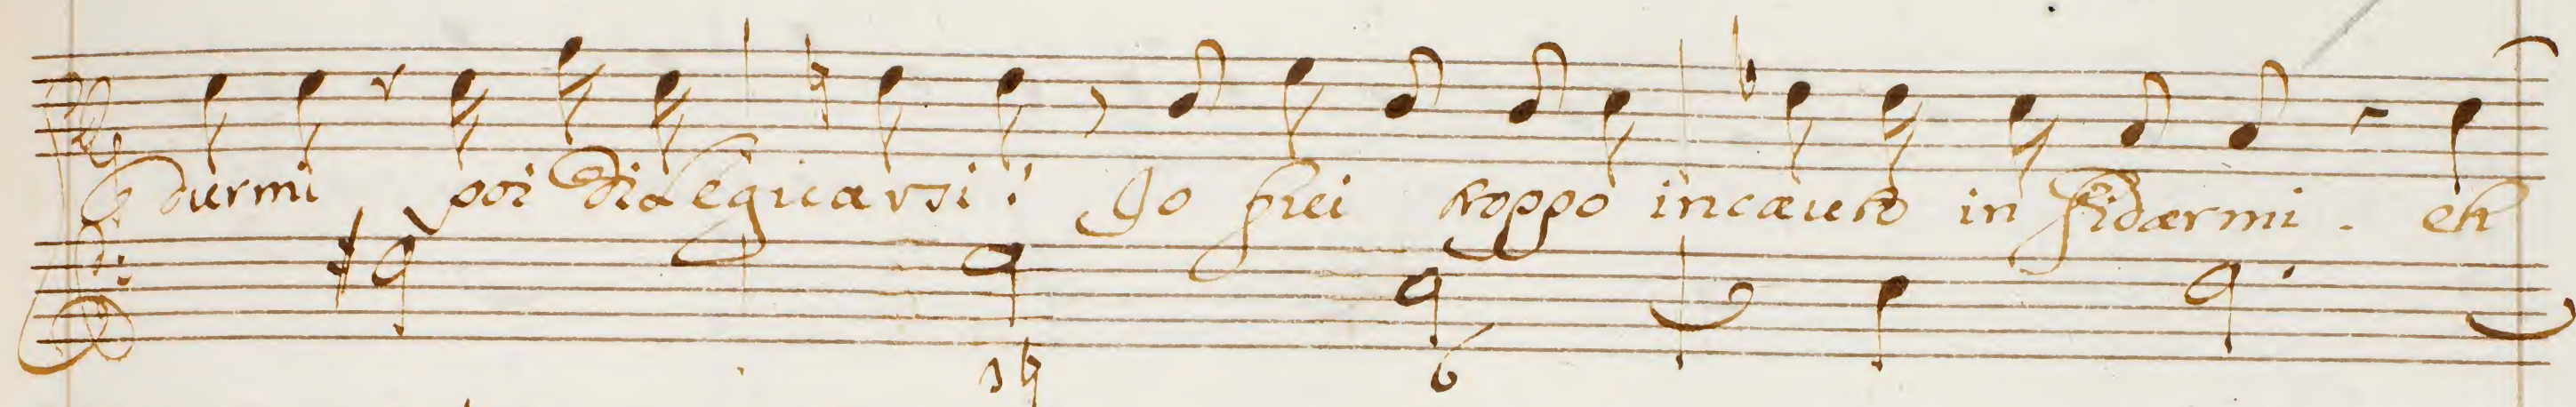 durmi poi dileguarsi! Io fui troppo incauto in fidarmi. eh
3♮ 6